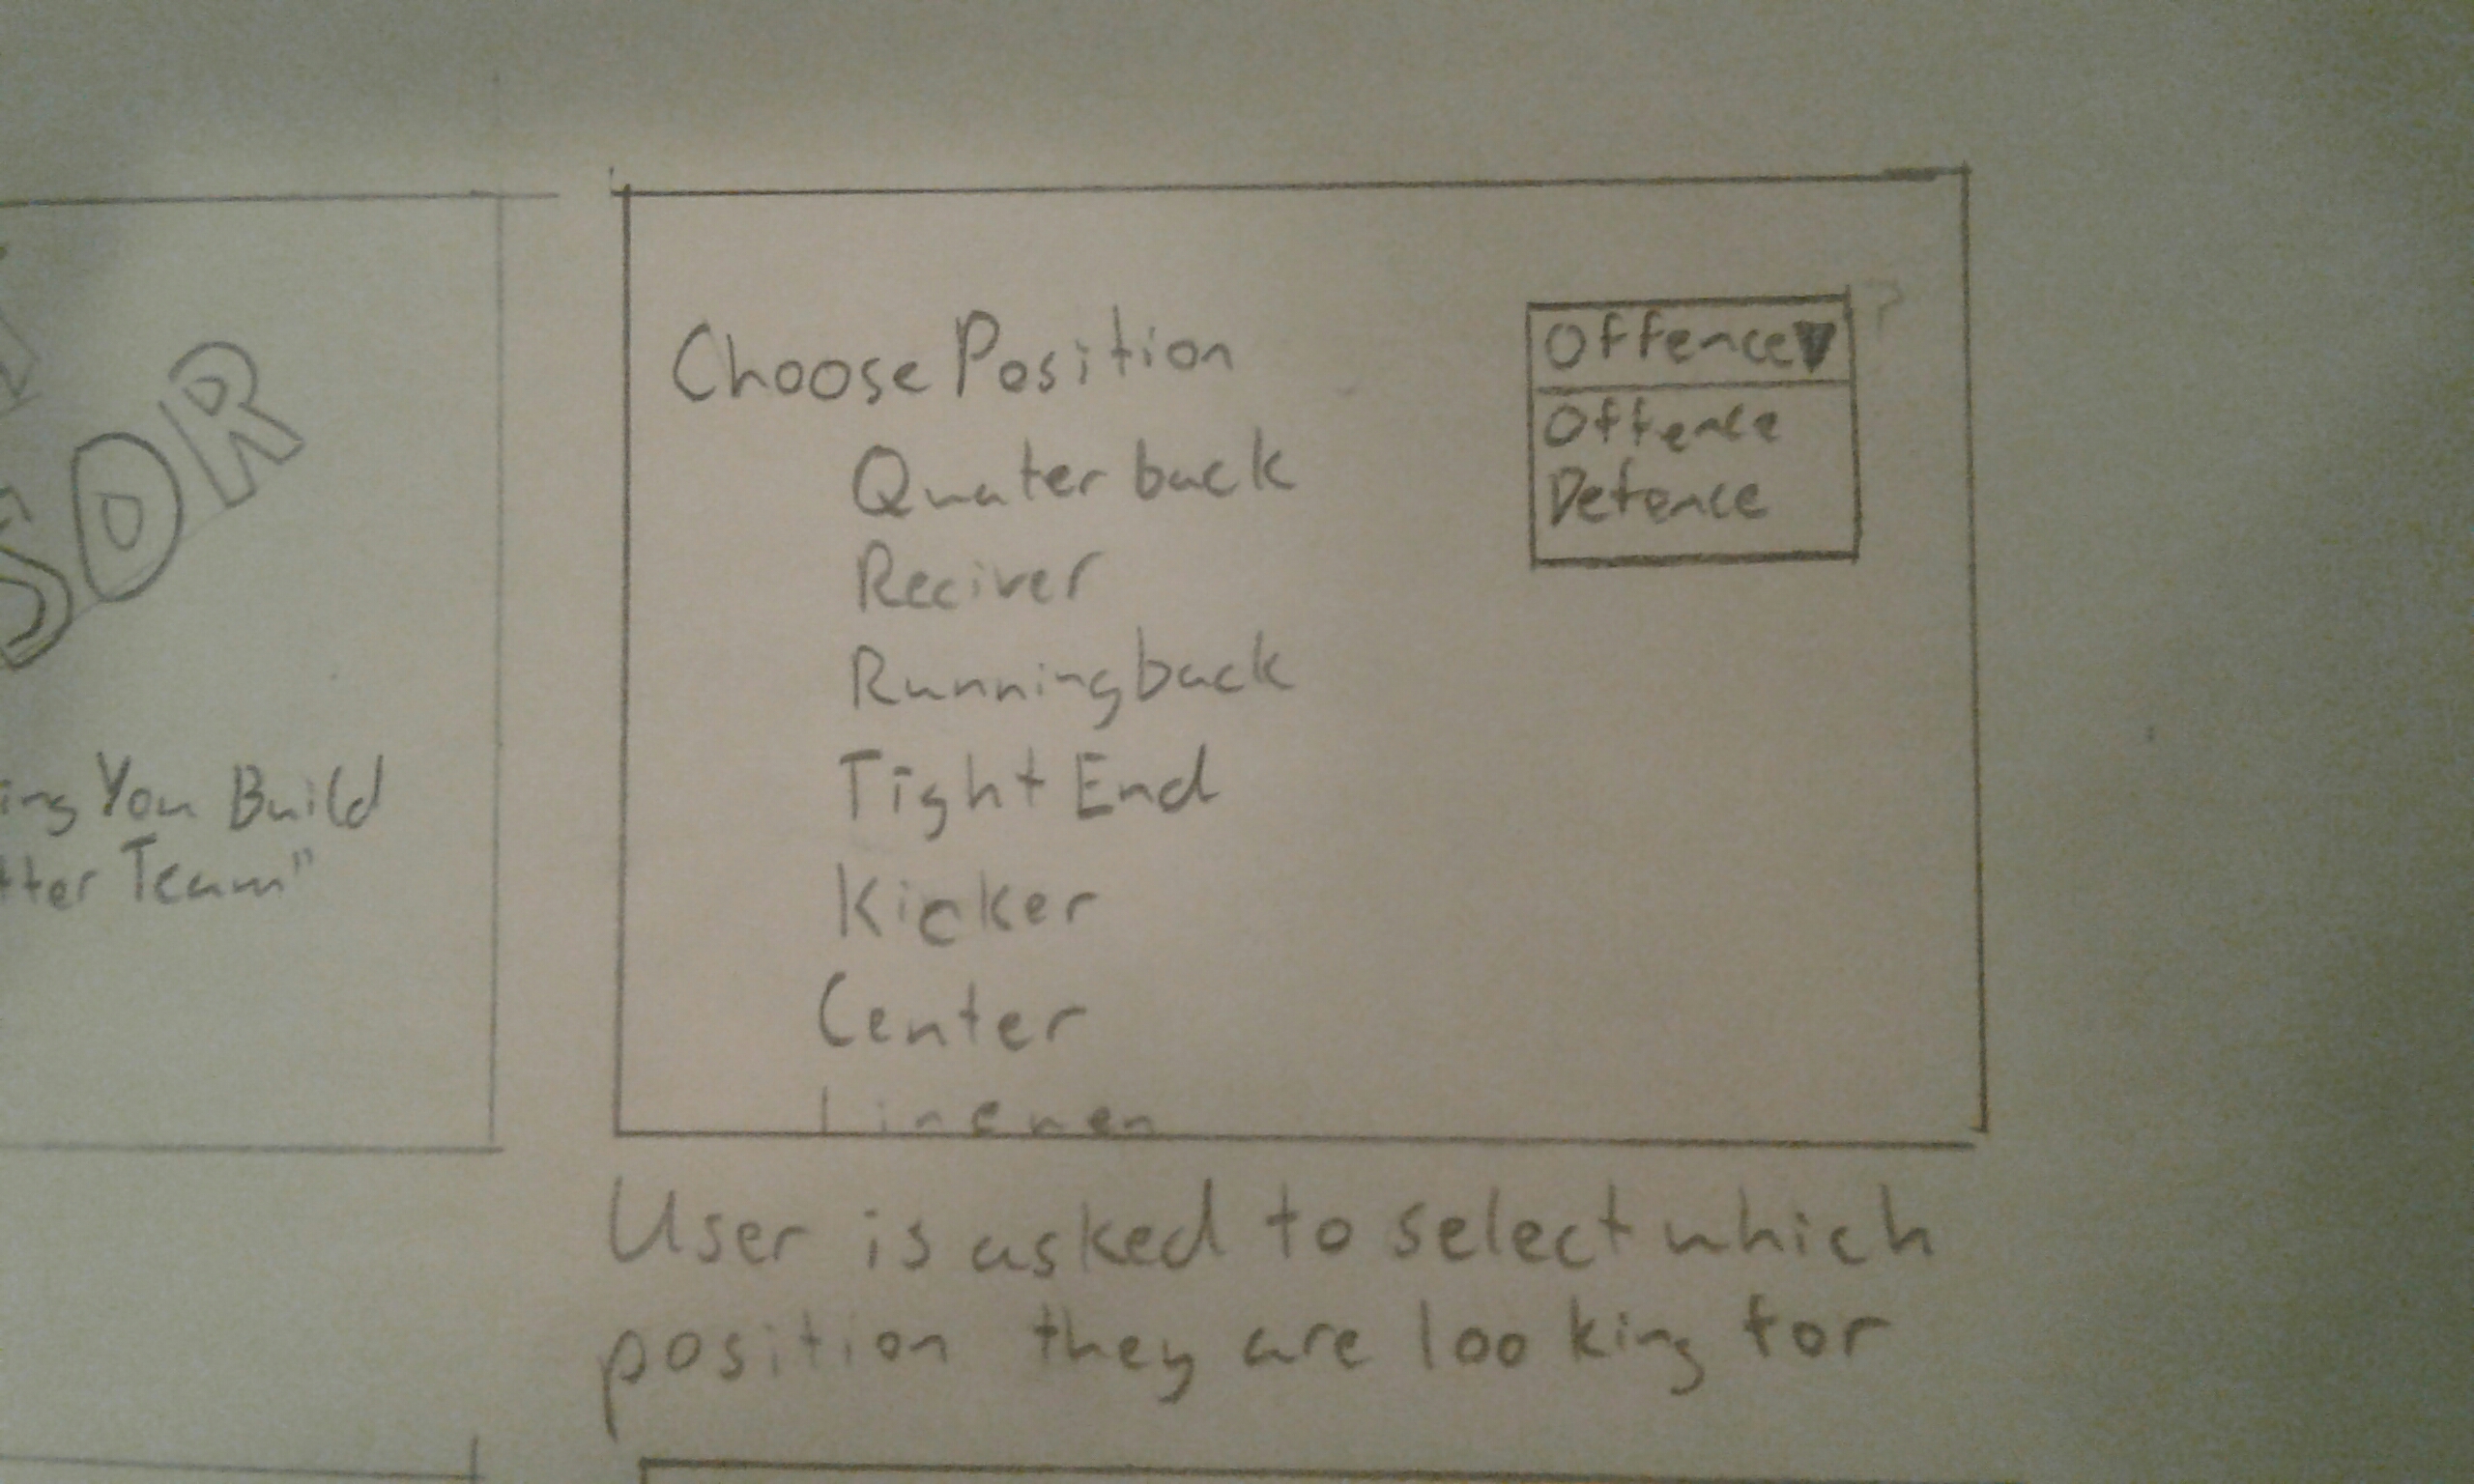 SOR
ing You Build
tter Team"
Choose Position
Quaterback
Reciver
Runningback
Tight End
Kicker
Center
Linemen
Offence
Offence
Defence
User is asked to select which
position they are looking for